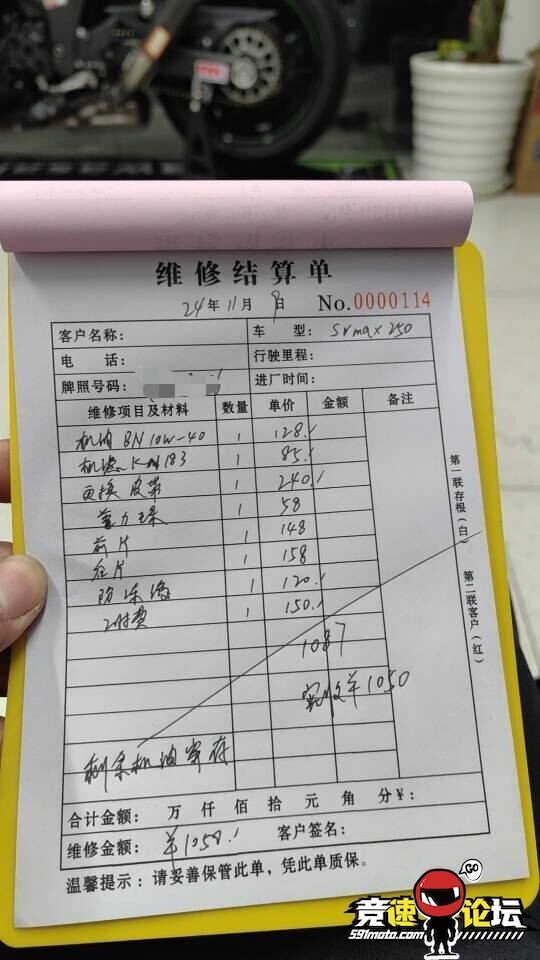 维修结算单
24年11月9日 No.0000114
客户名称： 车型： Srmax 250
电话： 行驶里程：
牌照号码： 进厂时间：
维修项目及材料 数量 单价 金额 备注
机油 BN 10W-40 1 128.
机滤 KN 183 1 85.
更换 皮带 1 240.
普力珠 1 58
前片 1 148
后片 1 158
防冻液 1 120.
工时费 1 150.
1087
实收¥1050
剩余机油寄存
第一联存根(白)
第二联客户(红)
合计金额： 万 仟 佰 拾 元 角 分¥：
维修金额： ¥1058. 客户签名：
温馨提示：请妥善保管此单，凭此单质保。
GO
竞速论坛
591moto.com